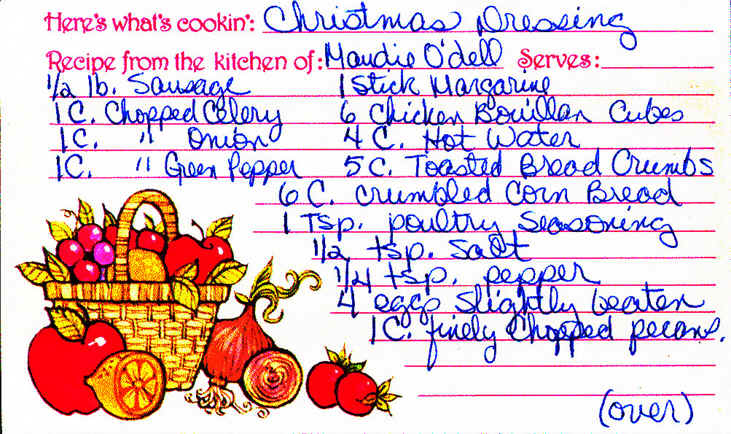 Here's what's cookin': Christmas Dressing
Recipe from the kitchen of: Maudie O'dell Serves:
1/2 lb. Sausage 1 Stick Margarine
1 C. Chopped Celery 6 Chicken Bouillan Cubes
1 C. " Onion 4 C. Hot Water
1 C. " Green Pepper 5 C. Toasted Bread Crumbs
6 C. crumbled Corn Bread
1 Tsp. poultry Seasoning
1/2 tsp. Salt
1/4 tsp. pepper
4 eggs slightly beaten
1 C. finely Chopped pecans.
(over)